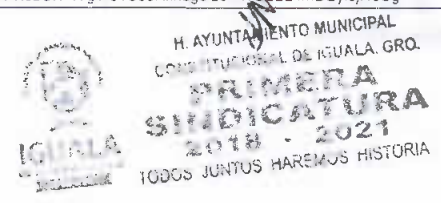 H. AYUNTAMIENTO MUNICIPAL
CONSTITUCIONAL DE IGUALA, GRO.
PRIMERA
SINDICATURA
2018 - 2021
TODOS JUNTOS HAREMOS HISTORIA
IGUALA